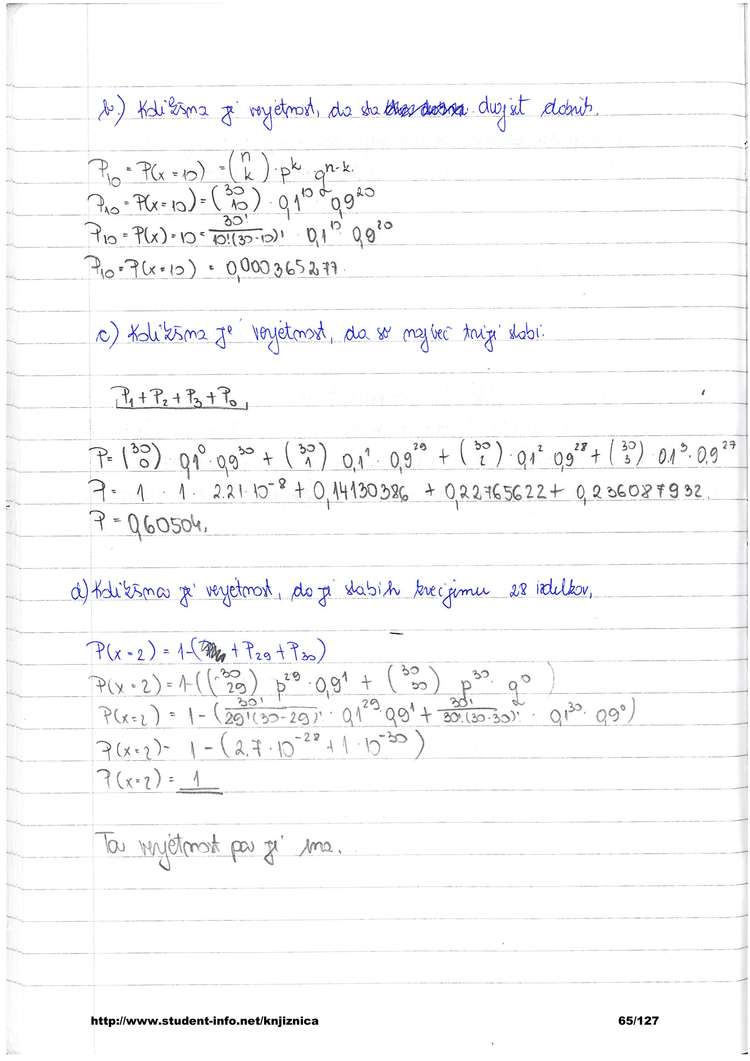 b.) Kolikšna je verjetnost, da sta dvajset dobrih.
P10 = P(x=10) = (n k) · p^k q^n-k.
P10 = P(x=10) = (30 10) · 0,1^10 · 0,9^20
P10 = P(x) = 10 = 30! / 10!(30-10)! · 0,1^10 · 0,9^20
P10 = P(x=10) = 0,000365277.
c) Kolikšna je verjetnost, da so največ trije slabi.
P1 + P2 + P3 + P0
P = (30 0) · 0,1^0 · 0,9^30 + (30 1) 0,1^1 · 0,9^29 + (30 2) · 0,1^2 0,9^28 + (30 3) · 0.1^3 · 0,9^27
P = 1 · 1 · 2.21·10^-8 + 0,14130386 + 0,22765622 + 0,236087932.
P = 0,60504.
d) Kolikšna je verjetnost, da je slabih kvečjemu 28 izdelkov,
P(x=2) = 1-( + P29 + P30)
P(x=2) = 1-((30 29) p^29 · 0,9^1 + (30 30) p^30 · q^0)
P(x=2) = 1 - (30! / 29!(30-29)! · 0,1^29 · 0,9^1 + 30! / 30!·(30-30)! · 0,1^30 · 0,9^0)
P(x=2) = 1 - (2.7·10^-28 + 1·10^-30)
P(x=2) = 1
Ta verjetnost pa je ena.
http://www.student-info.net/knjiznica 65/127